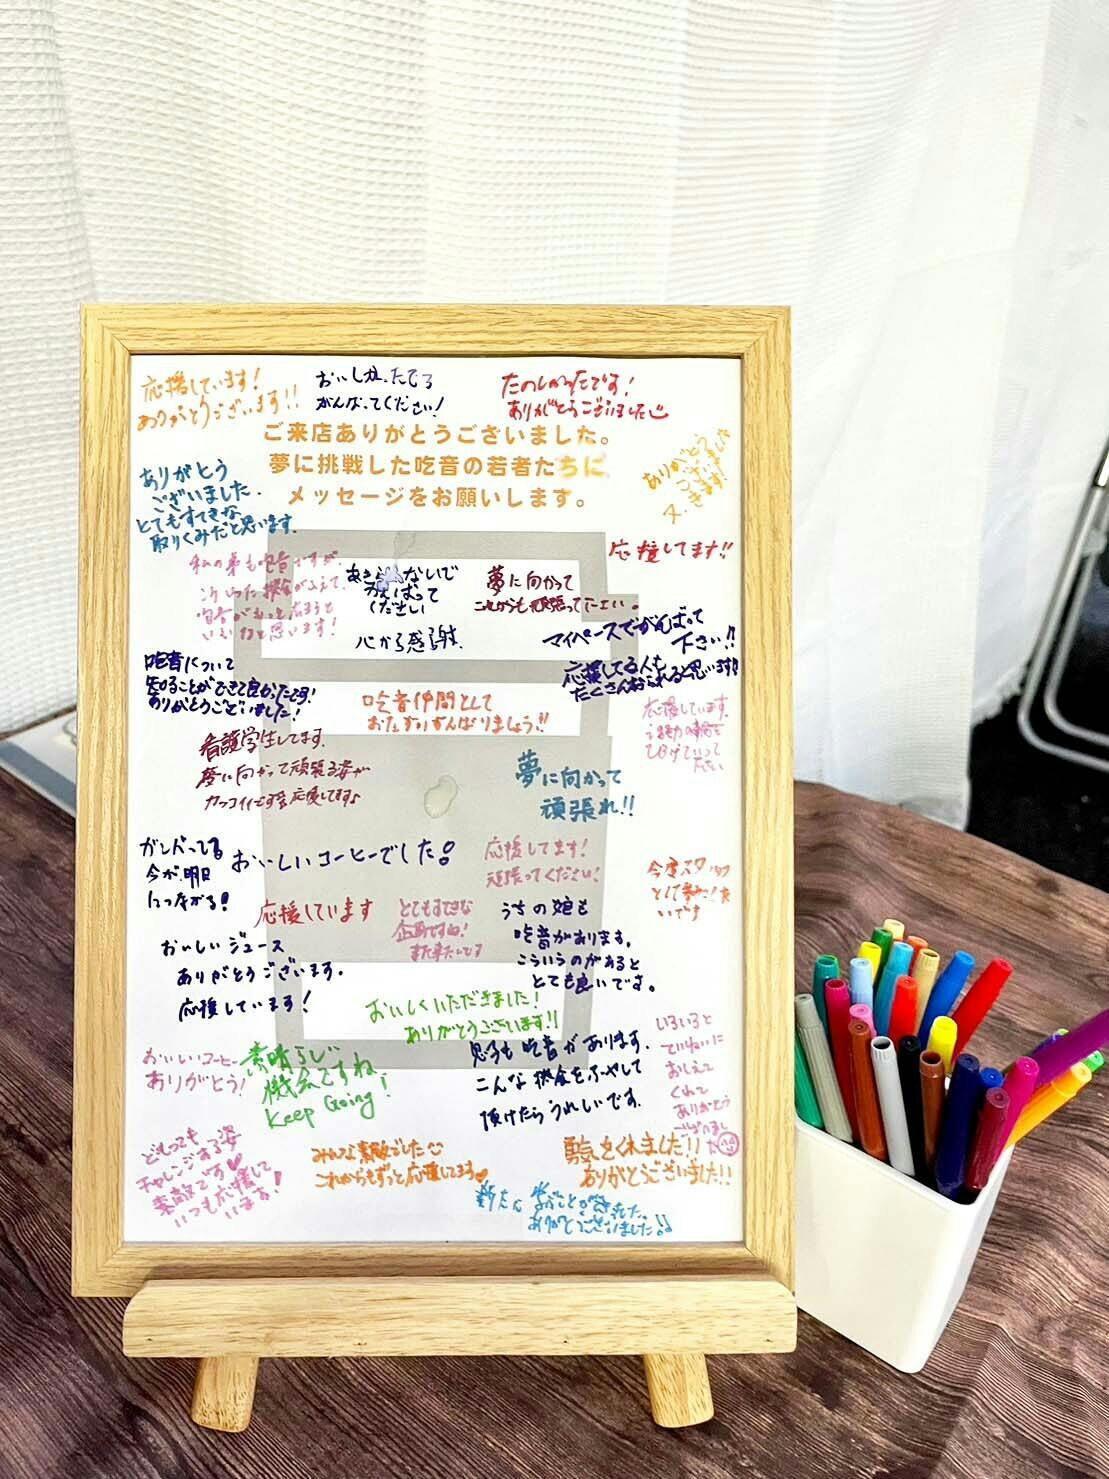 応援しています!
ありがとうございます!!
おいしかったです
がんばってください!
たのしかったです!
ありがとうございました
ご来店ありがとうございました。
夢に挑戦した吃音の若者たちに
メッセージをお願いします。
ありがとう
ございました
ありがとう
ございました.
とてもすてきな
取りくみだと思います.
応援してます!!
私の弟も吃音ですが、
こういった機会がふえて、
吃音がもっと広まると
いいなと思います!
あきらめないで
がんばって
ください
心から感謝.
夢に向かって
これからも頑張って下さい。
マイペースでがんばって
下さい!!
応援してる人も
たくさんおられると思います!!
吃音について
知ることができて良かったです!
ありがとうございました!
吃音仲間として
おたがいがんばりましょう!!
応援しています.
ひろげていって
ください
看護学生してます.
夢に向かって頑張る姿が
カッコイイです 応援してます♪
夢に向かって
頑張れ!!
ガンバってる
今が、明日
につながる!
おいしいコーヒーでした!
応援してます!
頑張ってください!
今度スタッフ
として参加した
いです
応援しています
とてもすてきな
企画ですね!
また来たいです
うちの娘も
吃音があります。
こういうのがあると
とても良いです。
おいしいジュース
ありがとうございます.
応援しています!
おいしくいただきました!
ありがとうございます!!
おいしいコーヒー
ありがとう!
素晴らしい
機会ですね!
Keep Going
息子も吃音があります.
こんな機会をふやして
頂けたらうれしいです.
いろいろと
ていねいに
おしえて
くれて
ありがとう
ございました
どもっても
チャレンジする姿
素敵です♥
いつも応援して
います!
みんな素敵でした
これからもずっと応援してます♥
勇気をくれました!!
ありがとうございました!!
学ぶことができました.
ありがとうございました!!